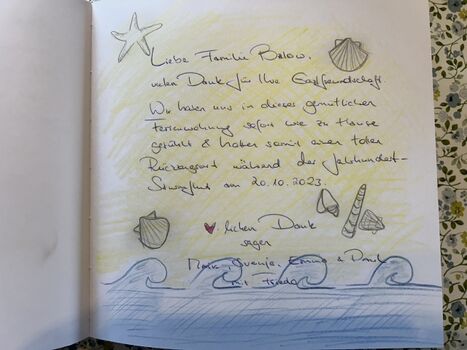 Liebe Familie Below,
vielen Dank für Ihre Gastfreundschaft.
Wir haben uns in dieser gemütlichen
Ferienwohnung sofort wie zu Hause
gefühlt & haben somit einen tollen
Rückzugsort während der Jahrhundert-
Sturmflut am 20.10.2023.
♥lichen Dank
sagen
Svenja, Emma &
mit Frieda